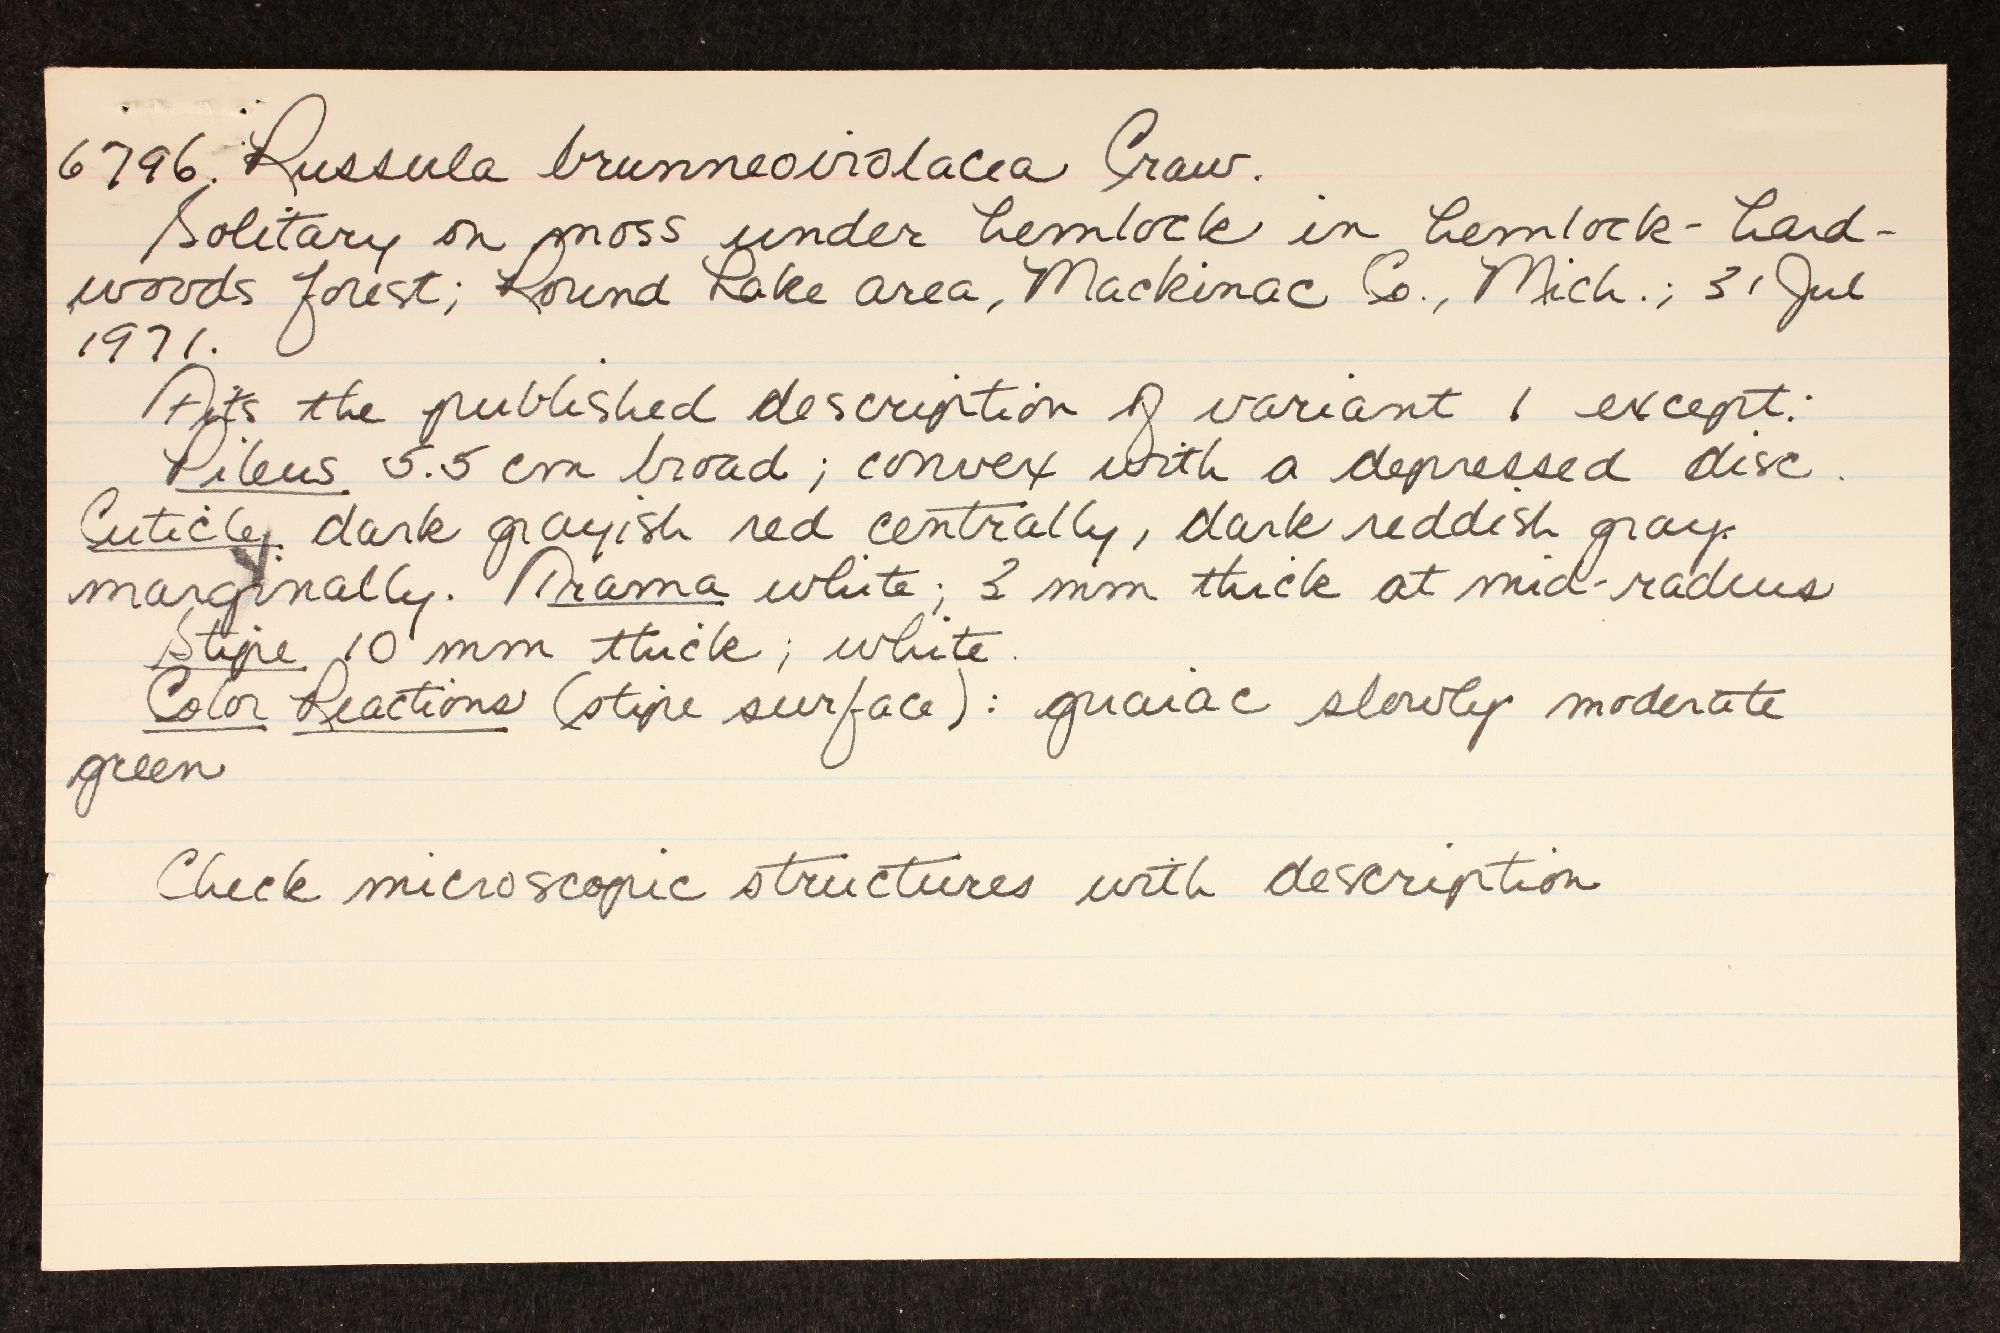 6796. Russula brunneoviolacea Craw.
Solitary on moss under hemlock in hemlock-hard-
woods forest; Round Lake area, Mackinac Co., Mich.; 31 Jul
1971.
Fits the published description of variant 1 except:
Pileus 5.5 cm broad; convex with a depressed disc.
Cuticle dark grayish red centrally, dark reddish gray
marginally. Trama white; 3 mm thick at mid-radius
Stipe 10 mm thick; white.
Color Reactions (stipe surface): guaiac slowly moderate
green
Check microscopic structures with description